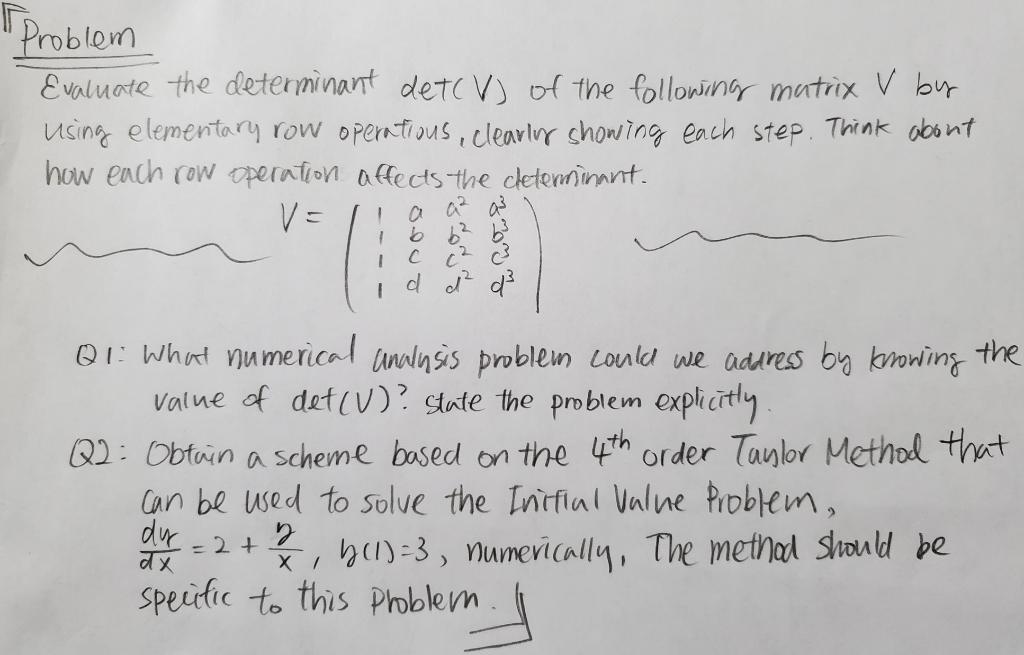 Problem
Evaluate the determinant det(V) of the following matrix V by
using elementary row operations, clearly showing each step. Think about
how each row operation affects the determinant.
V = ( 1 a a² a³
1 b b² b³
1 c c² c³
1 d d² d³ )
Q1: What numerical analysis problem could we address by knowing the
value of det(V)? state the problem explicitly.
Q2: Obtain a scheme based on the 4th order Taylor Method that
can be used to solve the Initial Value Problem,
dy/dx = 2 + y/x, y(1)=3, numerically, The method should be
specific to this problem.